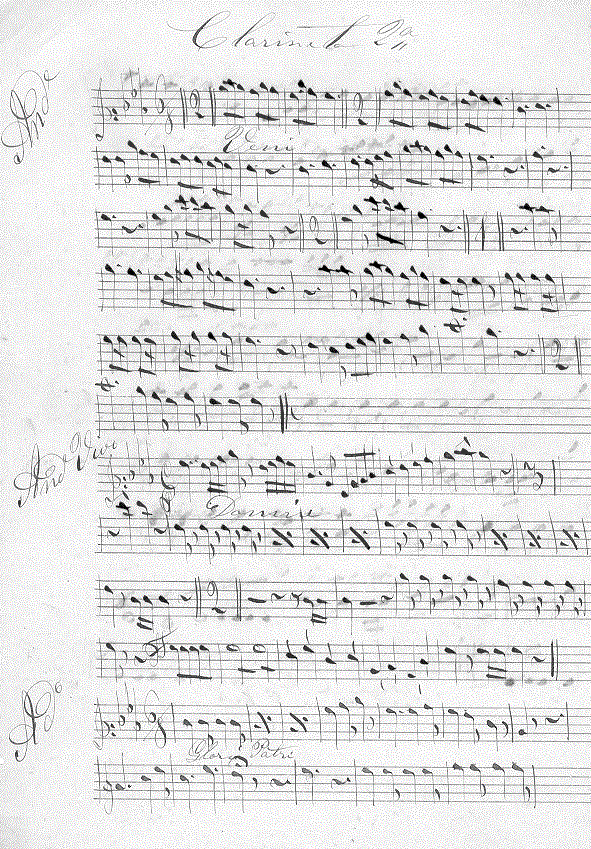 Clarinete 2ª
And.e
Veni
And.e Vivo
Domine
A.do
Gloria Patri